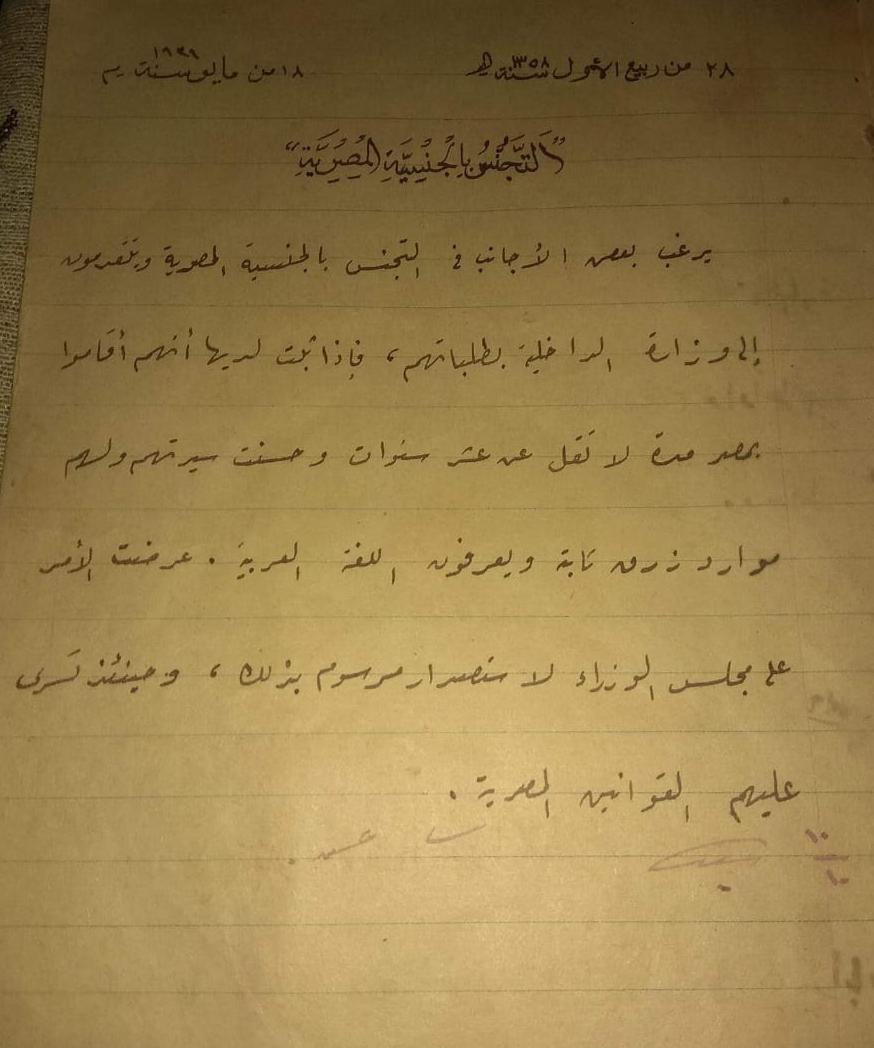 ٢٨ من ربيع الأول سنة ١٣٥٨ هـ ١٨ من مايو سنة ١٩٣٩ م
"اَلتَّجَنُّسُ بِالْجِنْسِيَّةِ الْمِصْرِيَّةِ"
يرغب بعض الأجانب فى التجنس بالجنسية المصرية ويتقدمون
إلى وزارة الداخلية بطلباتهم، فإذا ثبت لديها أنهم أقاموا
بمصر مدة لا تقل عن عشر سنوات وحسنت سيرتهم ولهم
موارد رزق ثابتة ويعرفون اللغة العربية. عرضت الأمر
على مجلس الوزراء لاستصدار مرسوم بذلك، وحينئذ تسرى
عليهم القوانين المصرية.
١٠
١٠